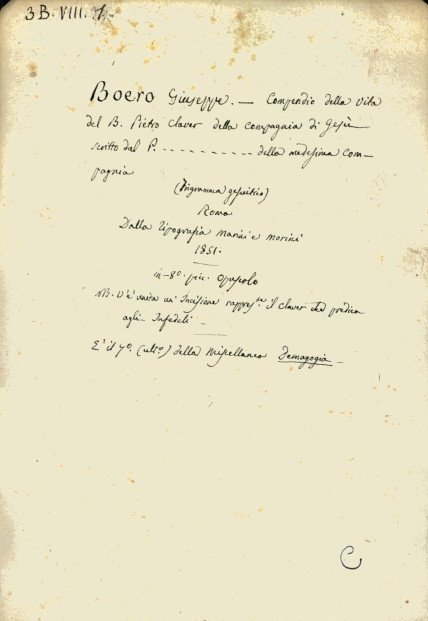 3 B. VIII. 7.
Boero Giuseppe. — Compendio della Vita
del B. Pietro Claver della Compagnia di Gesù
scritto dal P. - - - - - - - - - - della medesima com-
pagnia
(Trigramma gesuitico)
Roma
Dalla Tipografia Marini e Morini
1851.
in-8°. picc. Opuscolo
NB. V'è unita un' Incisione rappres.te il Claver che predica
agli Infedeli —
E' il 7°. (ult°.) della Miscellanea Demagogia —
C